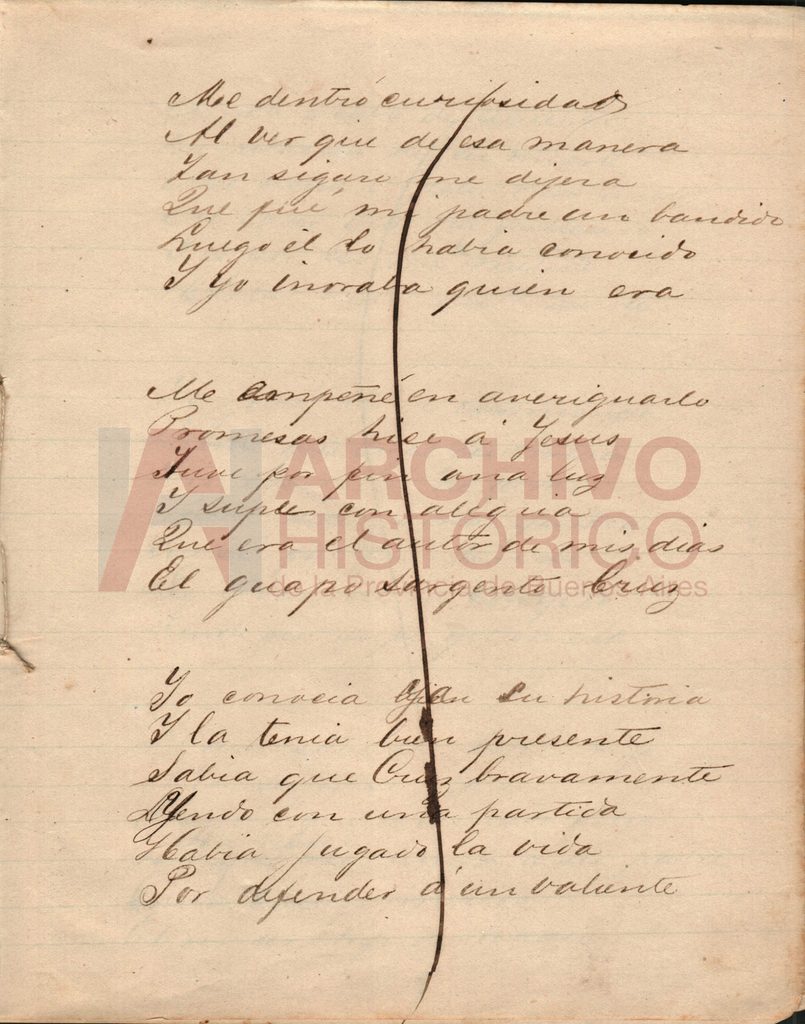 Me dentró curiosidad
Al ver que de esa manera
Tan siguro me dijera
Que fué mi padre un bandido
Luego él lo habia conocido
Y yo inoraba quien era
Me empeñé en averiguarlo
Promesas hice á Jesus
Tuve por fin una luz
Y supe con alegria
Que era el autor de mis dias
El guapo sargento Cruz
Yo conocia bien su historia
Y la tenia bien presente
Sabia que Cruz bravamente
Yendo con una partida
Habia jugado la vida
Por defender á un valiente
ARCHIVO
HISTÓRICO
de la Provincia de Buenos Aires